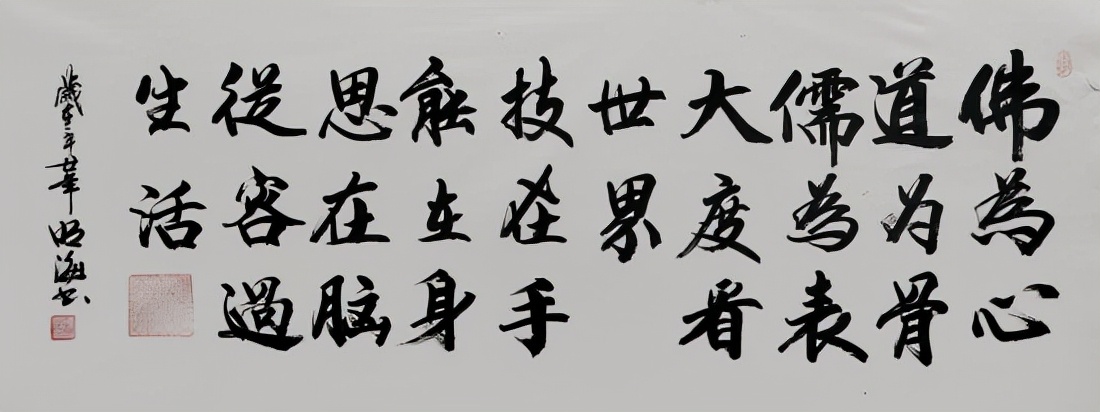 佛為心
道为骨
儒為表
大度看
世界
技在手
能在身
思在脑
從容過
生活
歲 明海书